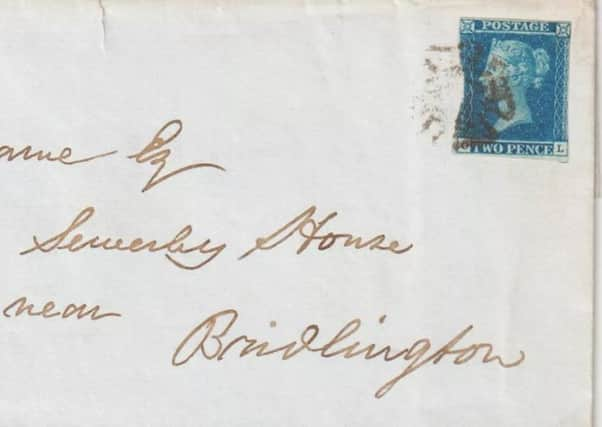 POSTAGE
TWO PENCE L
Esq
Sewerby House
near
Bridlington